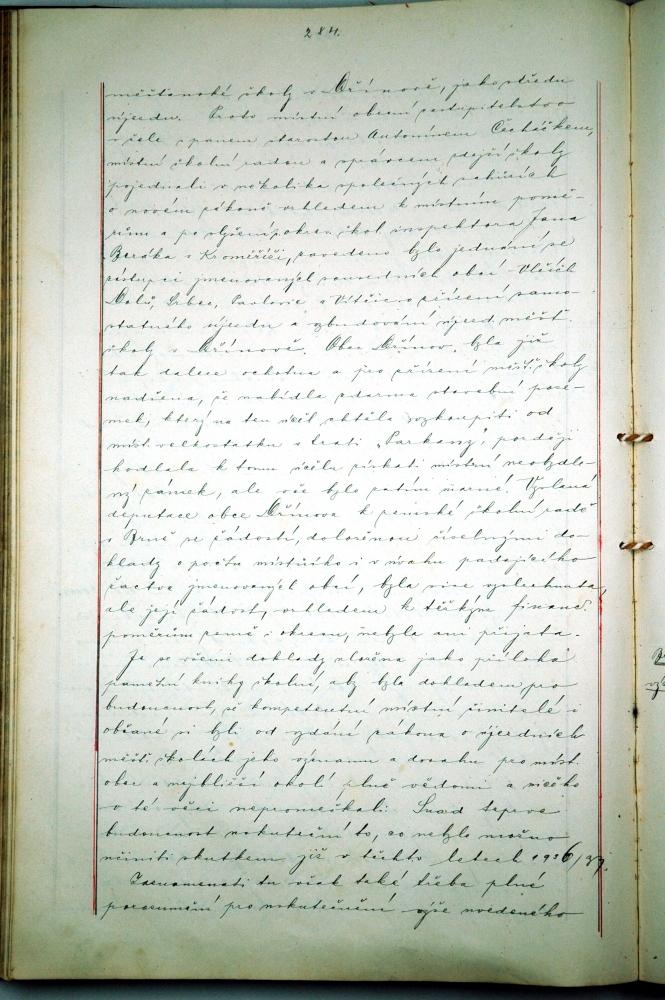 284.
měšťanské školy v Střínově, jako středu
újezdu. Proto místní obecní zastupitelstvo
v čele s panem starostou Antonínem Čecháčkem,
místní školní radou a správcem zdejší školy
pojednali v několika společných schůzích
o novém zákoně vzhledem k místním pomě-
rům a po slyšení okres. škol. inspektora Jana
Beráka z Kroměříže, zavedeno bylo jednání se
zástupci jmenovaných sousedních obcí
Pavlovic a o zřízení samo-
statného újezdu a vybudování újezd. měšť.
školy v Střínově. Obec Střínov byla již
tak dalece ochotna a pro zřízení měšť. školy
nadšena, že nabídla zdarma stavební poze-
mek, který na ten účel chtěla vykoupiti od
míst. velkostatku v trati „Parkany", později
hodlala k tomu účelu získati místní neobydle-
ný zámek, ale vše bylo zatím marné! Vyslaná
deputace obce Střínova k zemské školní radě
v Brně se žádostí, doloženou číselnými do-
klady o počtu místního i v úvahu padajícího
žactva jmenovaných obcí, byla sice vyslechnuta,
ale její žádost, vzhledem k těžkým financ.
poměrům země i okresu, nebyla ani přijata.
Je se všemi doklady vložena jako příloha
pamětní knihy školní, aby byla dokladem pro
budoucnost, že kompetentní místní činitelé i
občané si byli od vydání zákona o újezdních
měšť. školách jeho významu a dosahu pro míst.
obec a nejbližší okolí plně vědomi a ničeho
v té věci nepromeškali. Snad teprve
budoucnost uskuteční to, co nebylo možno
učiniti skutkem již v těchto letech 1936/37.
Zaznamenati tu však také třeba plné
porozumění pro uskutečnění výše uvedeného